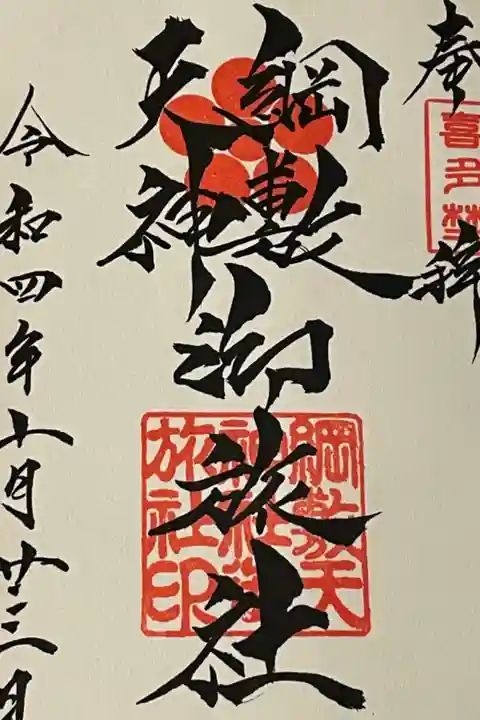 奉拝
喜多埜
綱敷
天神
御旅社
綱敷天
神社御
旅社印
令和四年十月廿三日